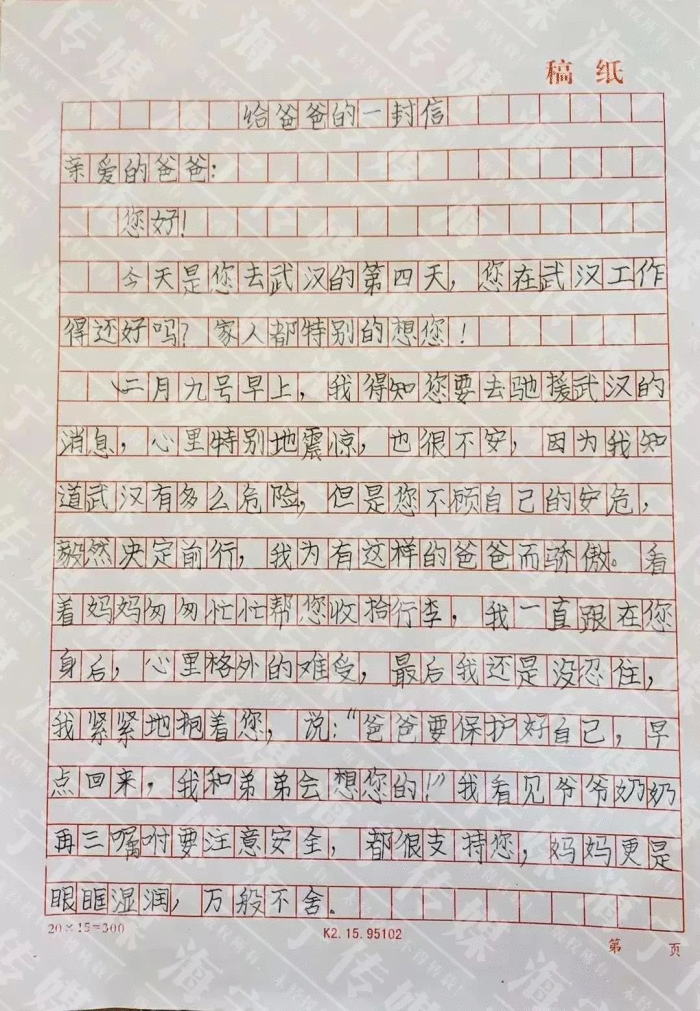 稿纸
给爸爸的一封信
亲爱的爸爸：
您好！
今天是您去武汉的第四天，您在武汉工作
得还好吗？家人都特别的想您！
二月九号早上，我得知您要去驰援武汉的
消息，心里特别地震惊，也很不安，因为我知
道武汉有多么危险，但是您不顾自己的安危，
毅然决定前行，我为有这样的爸爸而骄傲。看
着妈妈匆匆忙忙帮您收拾行李，我一直跟在您
身后，心里格外的难受，最后我还是没忍住，
我紧紧地抱着您，说：“爸爸要保护好自己，早
点回来，我和弟弟会想您的！”我看见爷爷奶奶
再三嘱咐要注意安全，都很支持您，妈妈更是
眼眶湿润，万般不舍。
20×15=300
K2.15.95102
第 页
海宁传媒